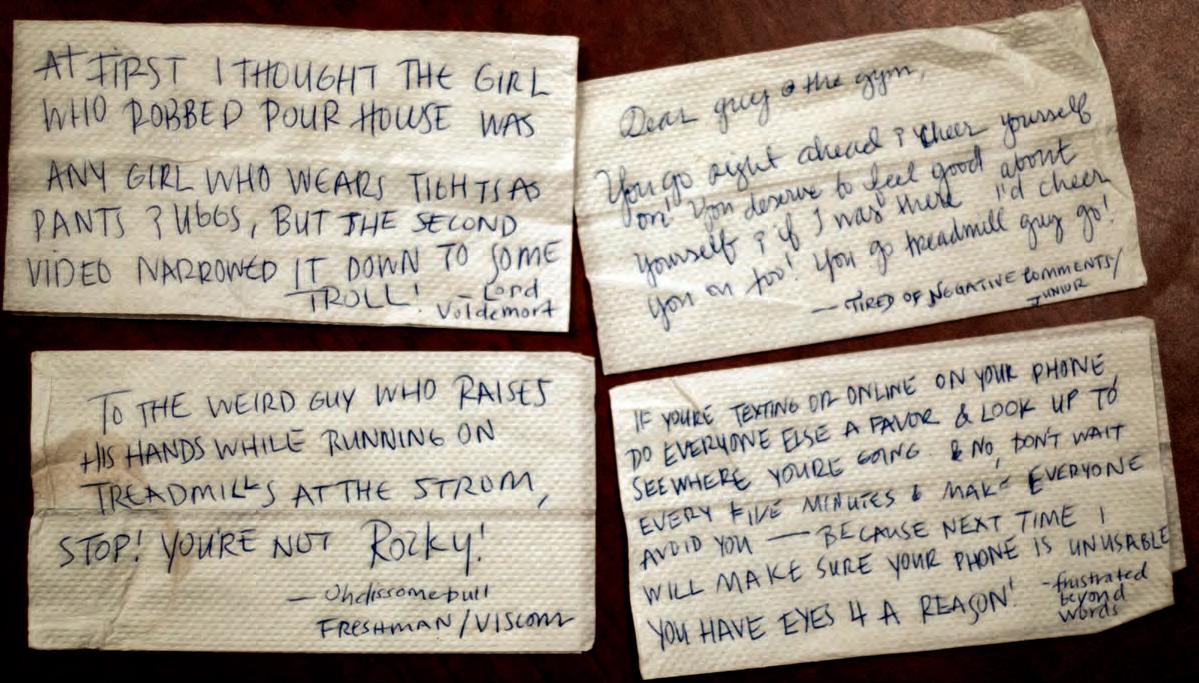 AT FIRST I THOUGHT THE GIRL
WHO ROBBED POUR HOUSE WAS
ANY GIRL WHO WEARS TIGHTS AS
PANTS & UGGS, BUT THE SECOND
VIDEO NARROWED IT DOWN TO SOME
TROLL!
- Lord
Voldemort
Dear guy @ the gym,
You go right ahead & cheer yourself
on! You deserve to feel good about
yourself & if I was there I'd cheer
you on too! You go treadmill guy go!
— TIRED OF NEGATIVE COMMENTS/
JUNIOR
TO THE WEIRD GUY WHO RAISES
HIS HANDS WHILE RUNNING ON
TREADMILLS AT THE STROM,
STOP! YOU'RE NOT ROCKY!
— Uhdissomebull
FRESHMAN/VISCOM
IF YOU'RE TEXTING OR ONLINE ON YOUR PHONE,
DO EVERYONE ELSE A FAVOR & LOOK UP TO
SEE WHERE YOU'RE GOING. & NO, DON'T WAIT
EVERY FIVE MINUTES & MAKE EVERYONE
AVOID YOU — BECAUSE NEXT TIME I
WILL MAKE SURE YOUR PHONE IS UNUSABLE
YOU HAVE EYES 4 A REASON!
- frustrated
beyond
words